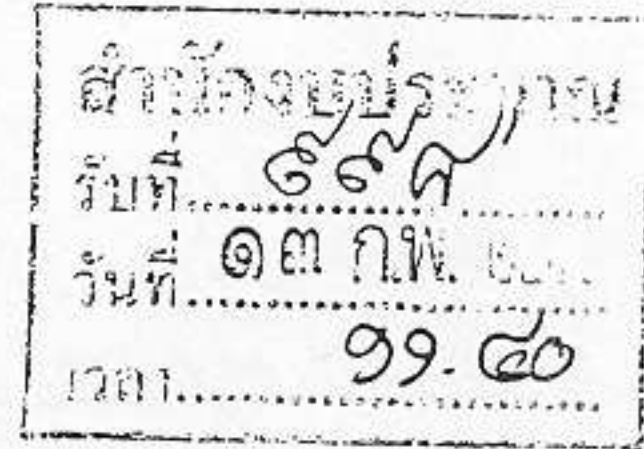 สำนักงบประมาณ
รับที่
วันที่ ๑๓ ก.พ.
เวลา ๑๑.๔๐